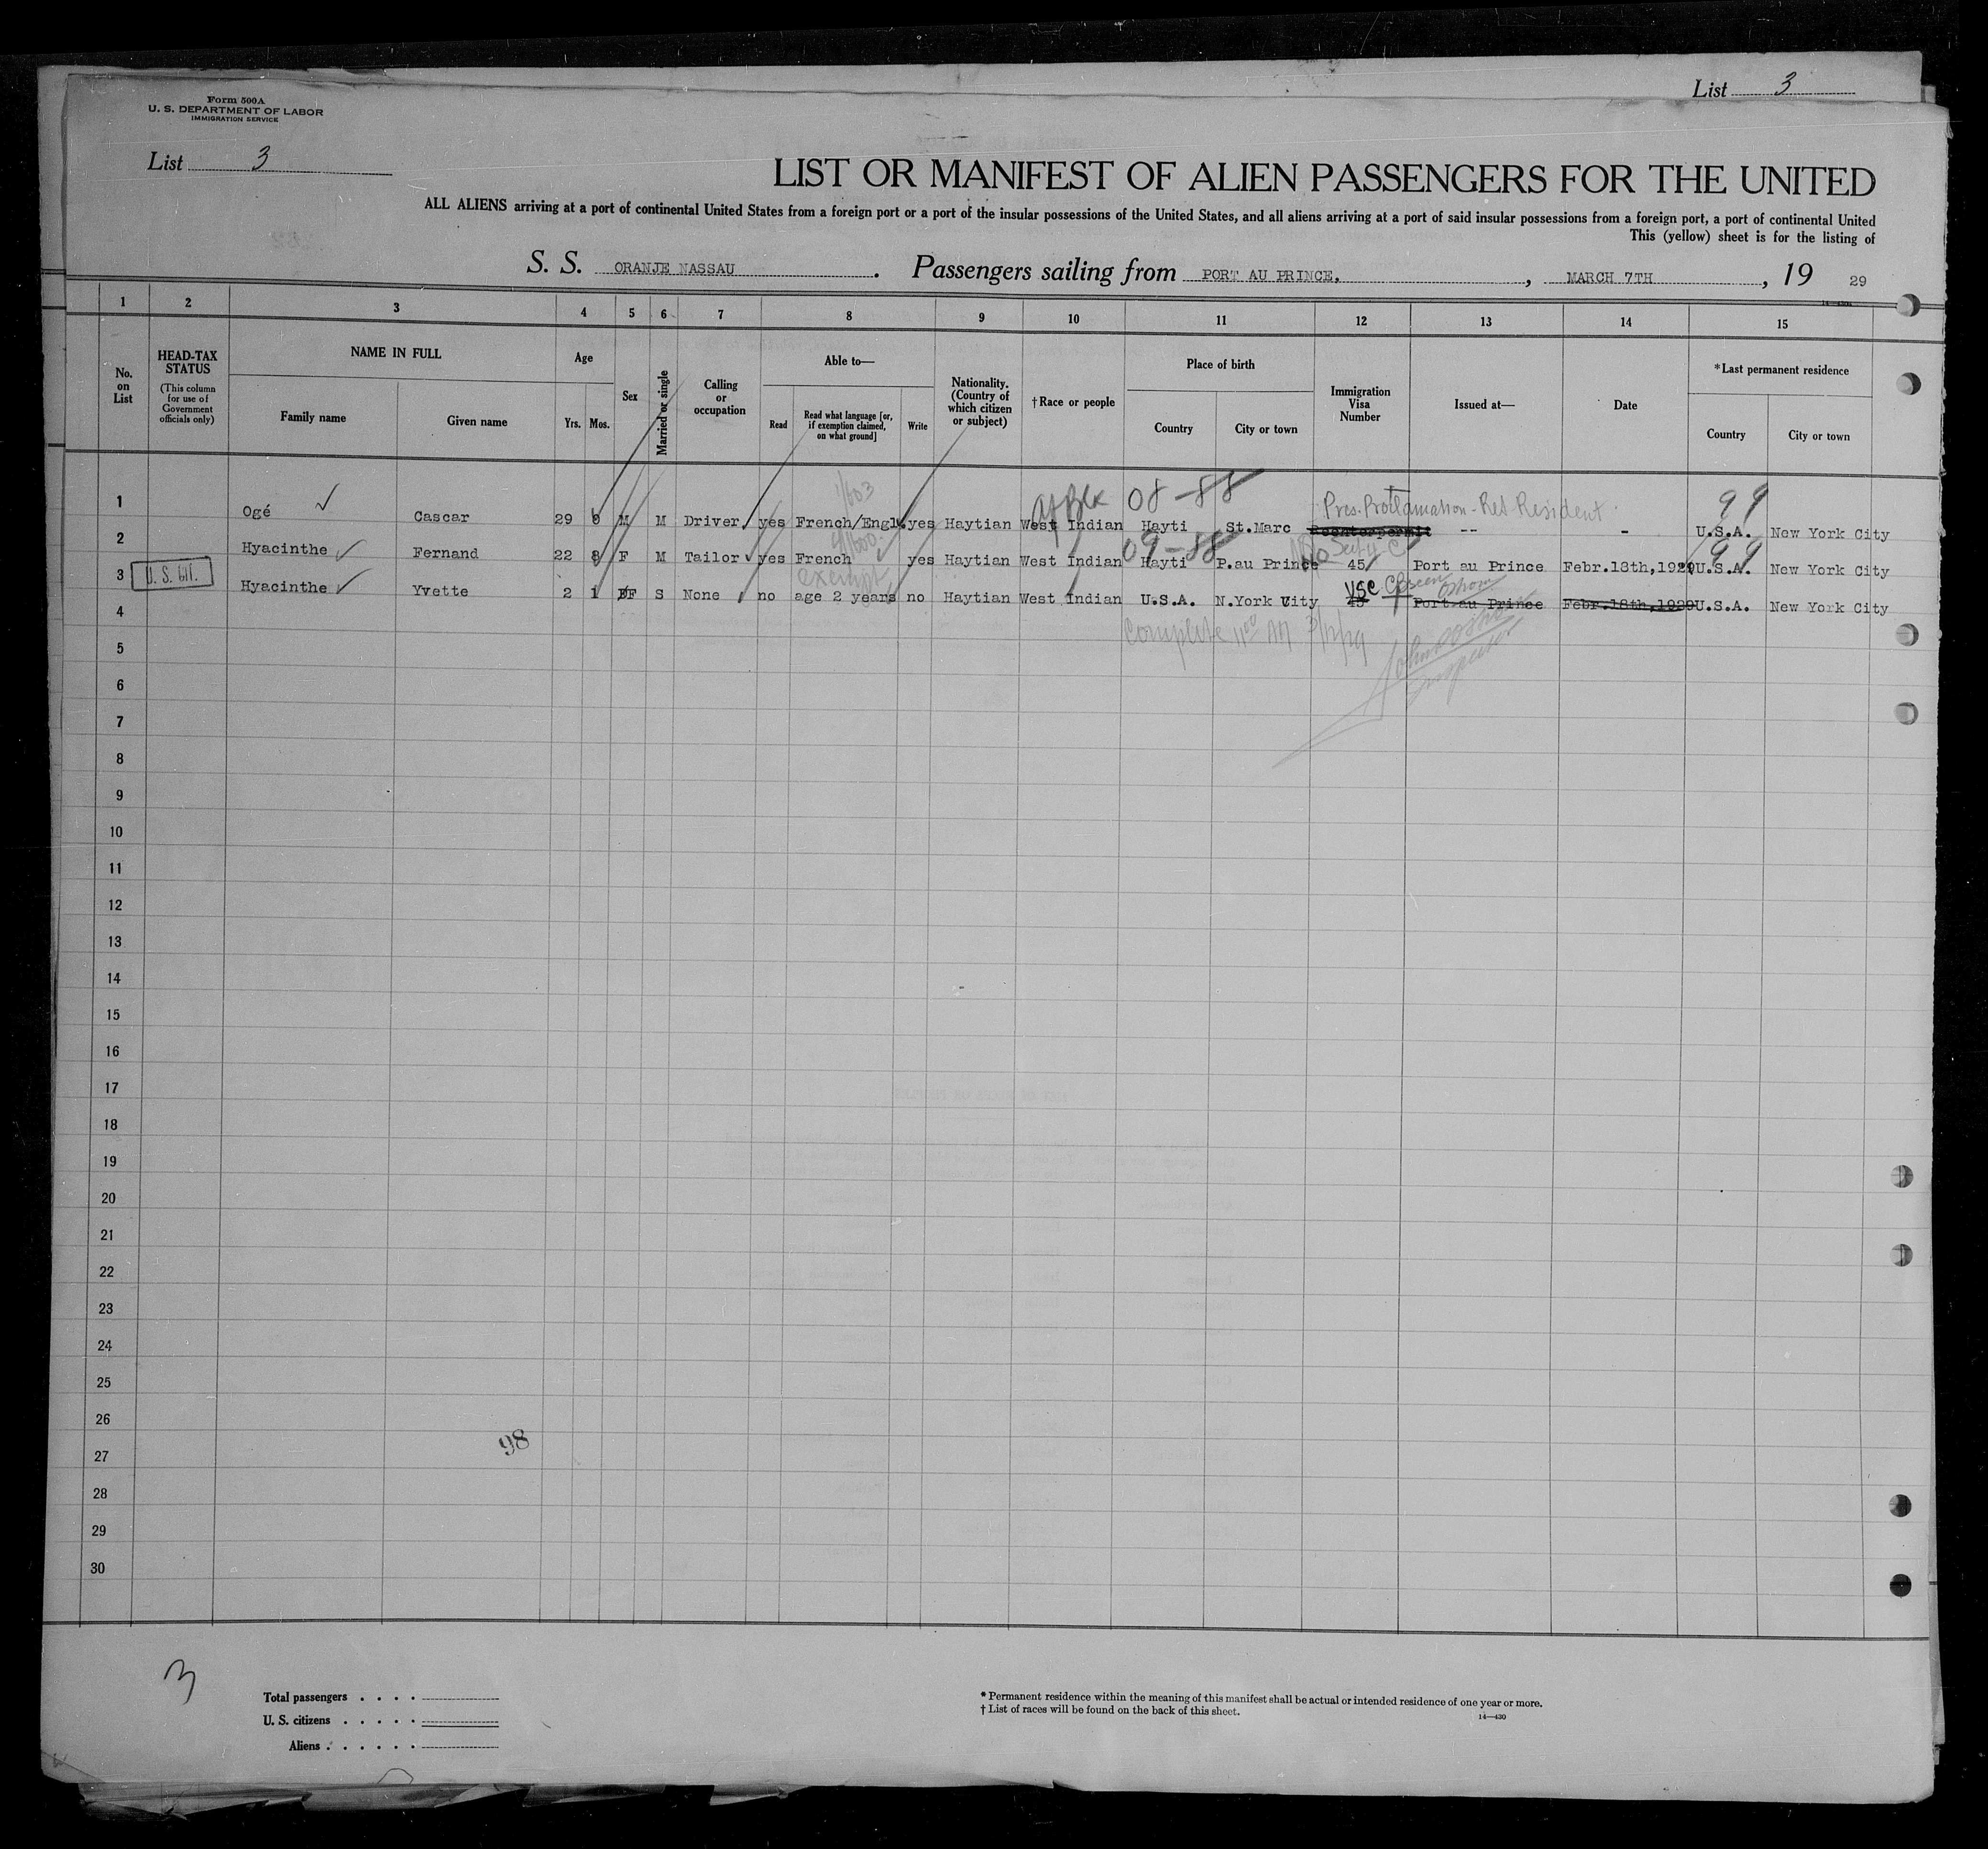 List 3
Form 500A
U. S. DEPARTMENT OF LABOR
IMMIGRATION SERVICE
List 3
LIST OR MANIFEST OF ALIEN PASSENGERS FOR THE UNITED
ALL ALIENS arriving at a port of continental United States from a foreign port or a port of the insular possessions of the United States, and all aliens arriving at a port of said insular possessions from a foreign port, a port of continental United
This (yellow) sheet is for the listing of
S. S. ORANJE NASSAU. Passengers sailing from PORT AU PRINCE, , MARCH 7TH , 19 29
1 2 3 4 5 6 7 8 9 10 11 12 13 14 15
No. on List
HEAD-TAX STATUS (This column for use of Government officials only)
NAME IN FULL
Family name Given name
Age
Yrs. Mos.
Sex
Married or single
Calling or occupation
Able to—
Read Read what language [or, if exemption claimed, on what ground] Write
Nationality. (Country of which citizen or subject)
†Race or people
Place of birth
Country City or town
Immigration Visa Number
Issued at—
Date
*Last permanent residence
Country City or town
Af Blk 08-88 Pres. Proclamation - Ret Resident 99
1 Ogé Cascar 29 M M Driver yes French/Engl. yes Haytian West Indian Hayti St.Marc Reenterpermit -- - U.S.A. New York City
09-88 99
2 Hyacinthe Fernand 22 8 F M Tailor yes French yes Haytian West Indian Hayti P.au Prince 45 Port au Prince Febr.18th,1929 U.S.A. New York City
exempt
3 U.S. Hyacinthe Yvette 2 1 F S None no age 2 years no Haytian West Indian U.S.A. N.York City 45 USC Port au Prince Febr.18th,1929 U.S.A. New York City
4
Complete 11 00 AM 3/12/29
5
6
7
8
9
10
11
12
13
14
15
16
17
18
19
20
21
22
23
24
25
26
98
27
28
29
30
3
Total passengers . . . .
U. S. citizens . . . . .
Aliens . . . . . .
* Permanent residence within the meaning of this manifest shall be actual or intended residence of one year or more.
† List of races will be found on the back of this sheet.
14—430